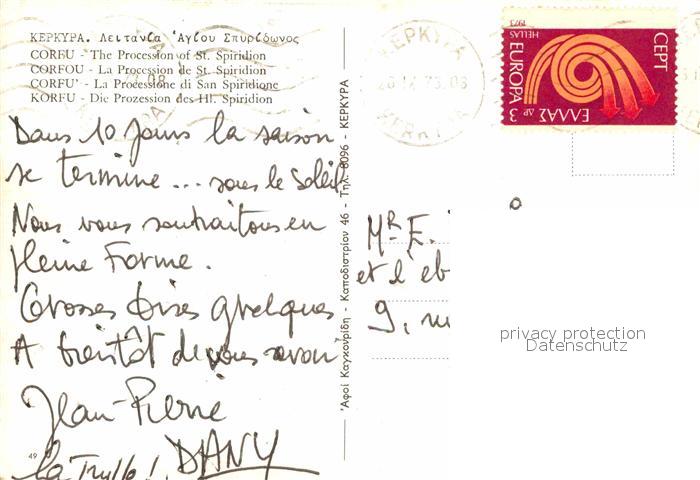 ΚΕΡΚΥΡΑ. Λειτανία Ἁγίου Σπυρίδωνος
CORFU - The Procession of St. Spiridion
CORFOU - La Procession de St. Spiridion
CORFU' - La Processione di San Spiridione
KORFU - Die Prozession des Hl. Spiridion
Dans 10 Jours la saison
se termine... sous le Soleil
Nous vous souhaitons en
pleine Forme.
Grosses bises
A bientôt de vous avoir
Jean-Pierre
DANY
49
Ἀφοί Καγκουρίδη - Καποδιστρίου 46 - Τηλ. 8096 - ΚΕΡΚΥΡΑ
ΚΕΡΚΥΡΑ
KERKYRA
1973
HELLAS
EUROPA
CEPT
ΕΛΛΑΣ
ΔΡ 3
Mr E.
et l'
9,
privacy protection
Datenschutz